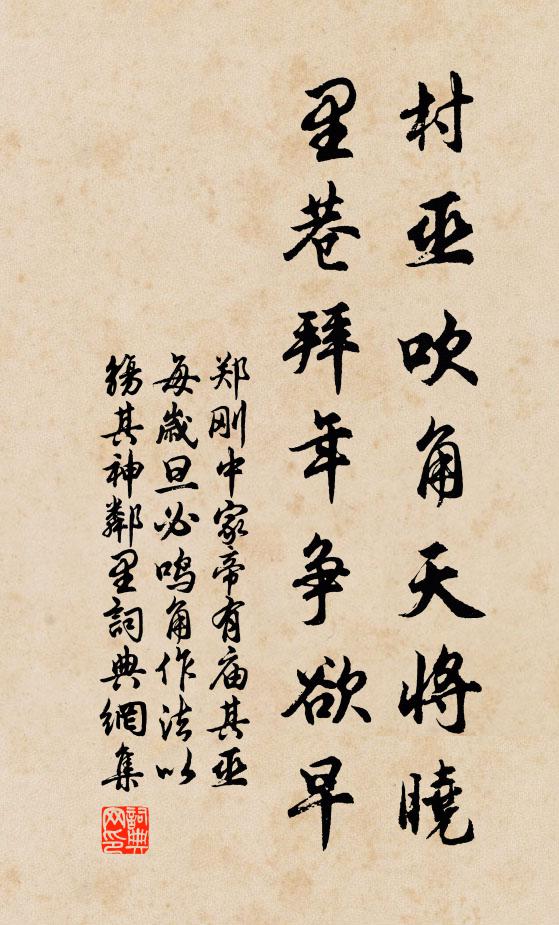 村巫吹角天將曉
里巷拜年爭欲早
郑刚中家帝有庙其巫
每歲旦必鸣角作法以
禓其神鄰里詞典網集
詞典网印